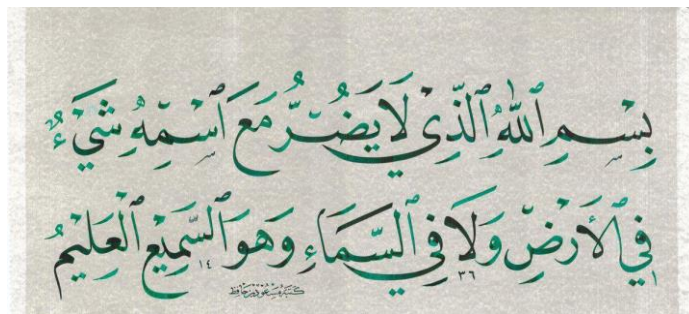 بِسْمِ ٱللَّهِ ٱلَّذِي لَا يَضُرُّ مَعَ ٱسْمِهِ شَيْءٌ
فِي ٱلْأَرْضِ وَلَا فِي ٱلسَّمَاءِ وَهُوَ ٱلسَّمِيعُ ٱلْعَلِيمُ
١٤٣٦